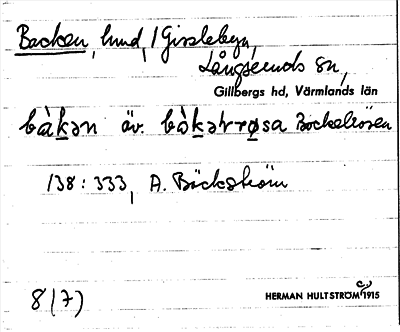 Backen, hmd, / Gisslebyn,
Långseruds sn,
Gillbergs hd, Värmlands län
bàkən äv. bòkərrøsa Bockekrösen
138:333, A. Bäckström
8(7)
HERMAN HULTSTRÖM 1915